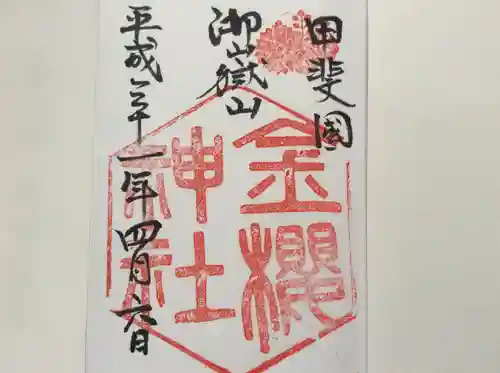 甲斐國
御山嶽山
金櫻
神社
平成三十一年四月六日